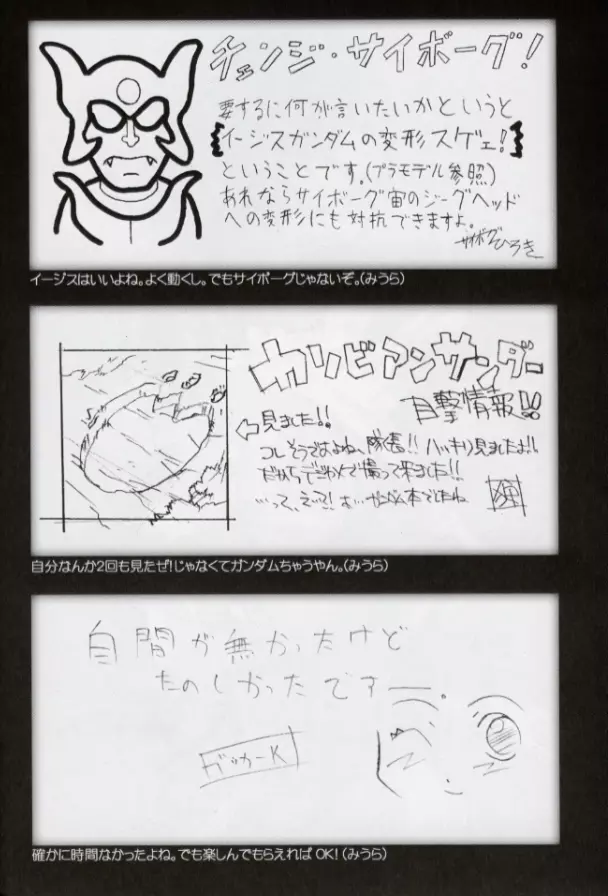 チェンジ・サイボーグ!
要するに何が言いたいかというと
イージスガンダムの変形スゲェ!
ということです。(プラモデル参照)
あれならサイボーグ宙のジーグヘッド
への変形にも対抗できますよ。
サイボーグひろき
イージスはいいよね。よく動くし。でもサイボーグじゃないぞ。(みうら)
カリビアンサンダー
目撃情報!!
見ました!!
コレそうですよね、隊長!! ハッキリ見ましたよ!!
で撮って来ました!!
自分なんか2回も見たぜ!じゃなくてガンダムちゃうやん。(みうら)
自間が無かったけど
たのしかったですー。
確かに時間なかったよね。でも楽しんでもらえれば OK!(みうら)